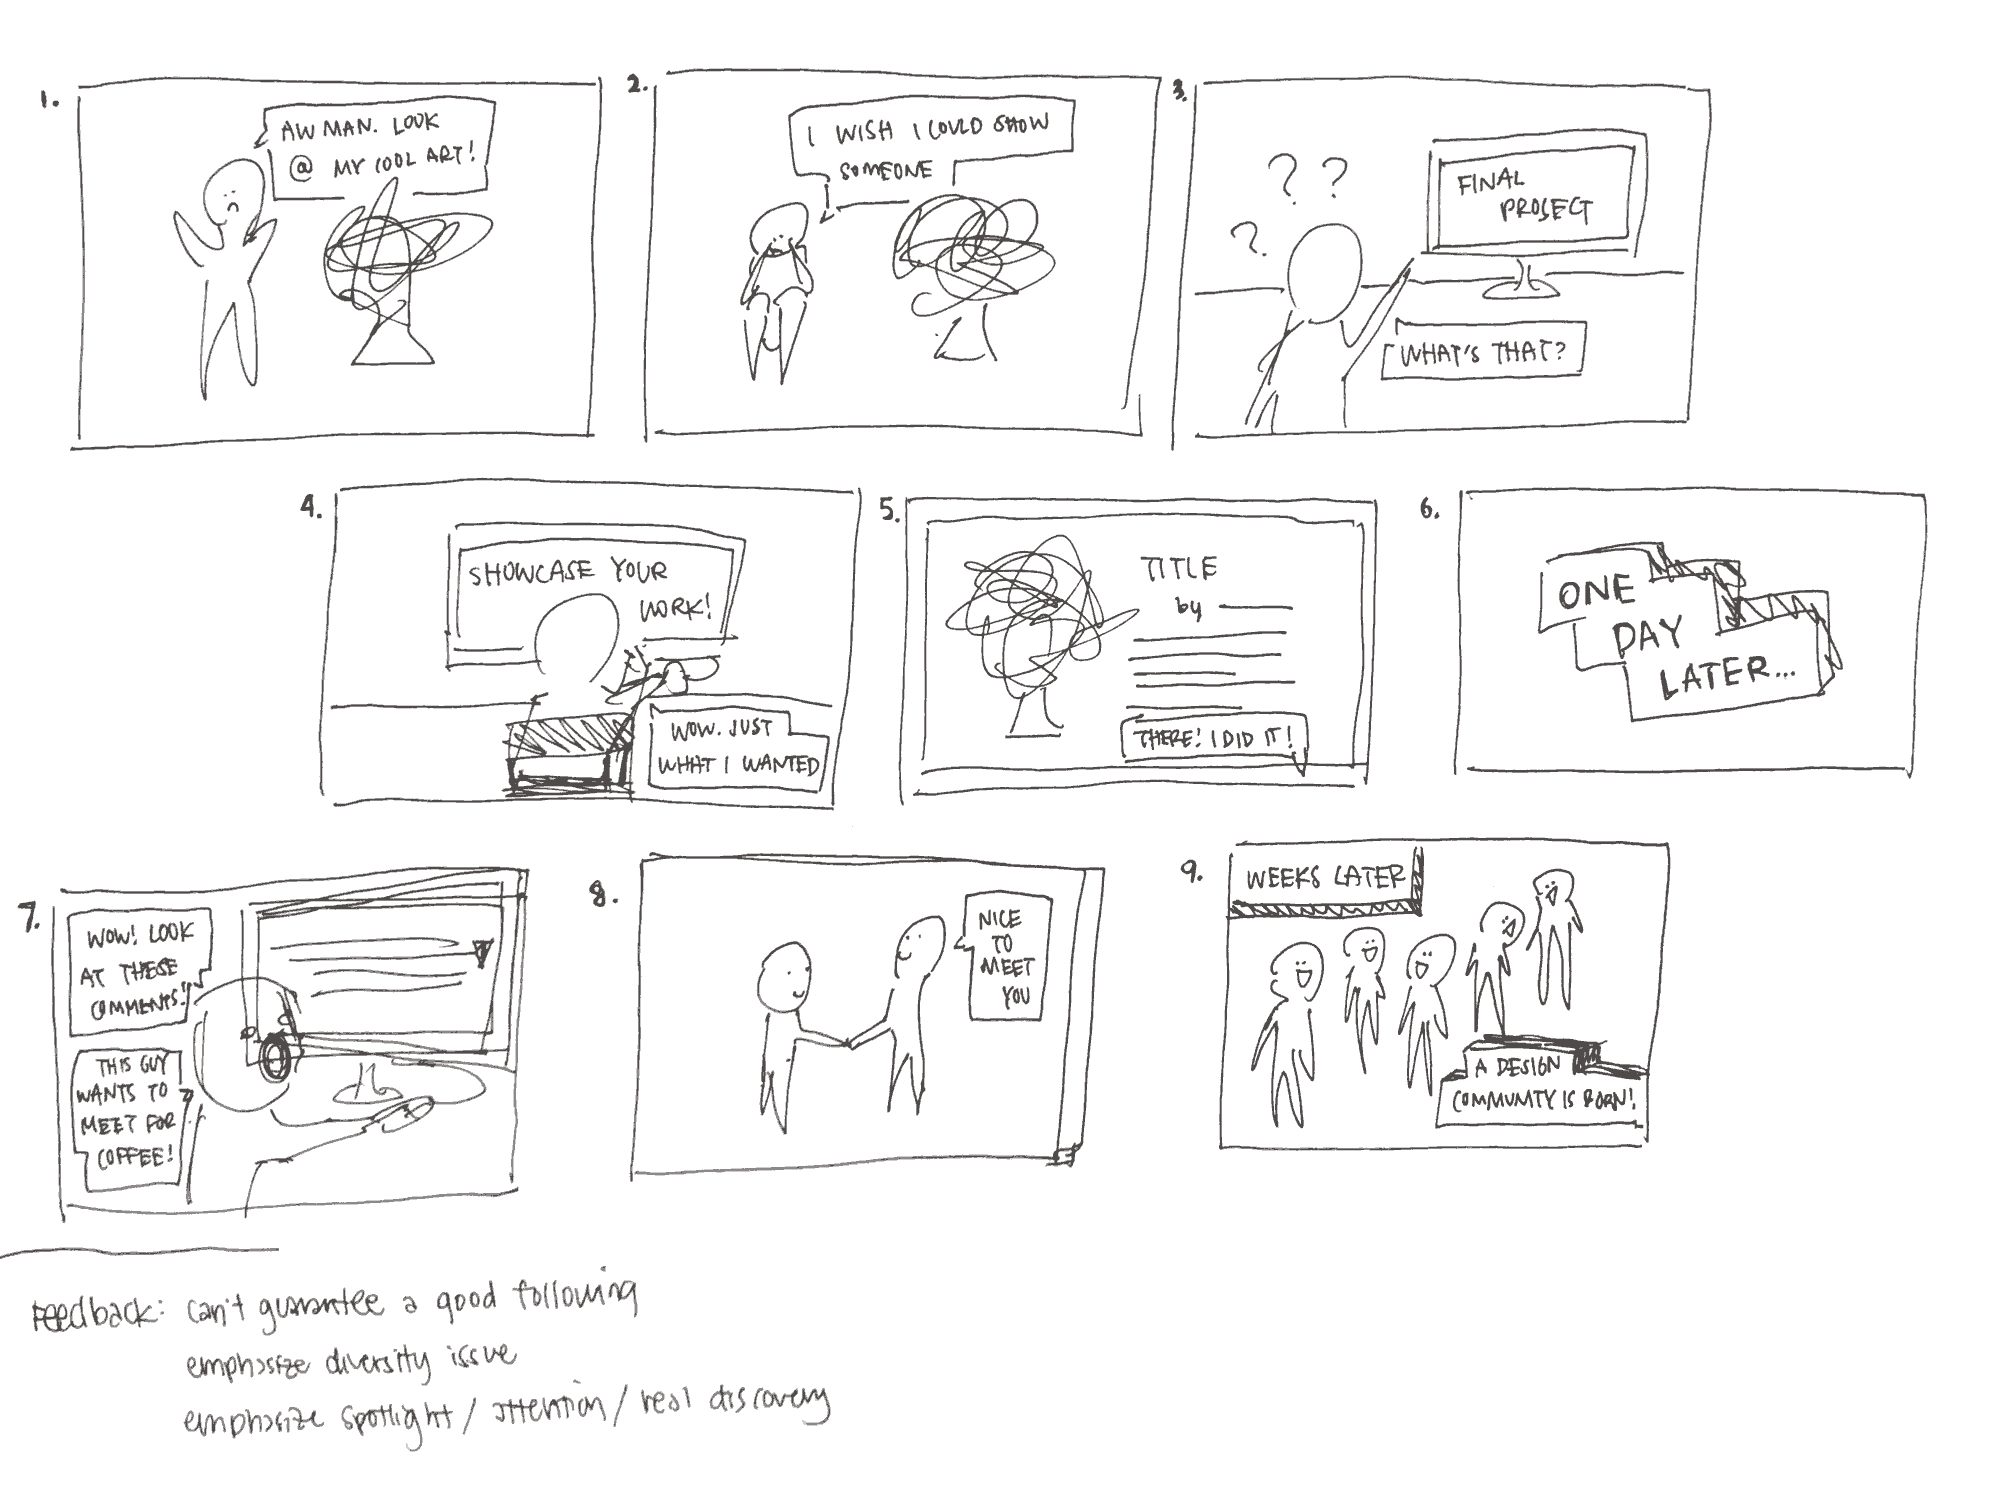 1.
AW MAN. LOOK
@ MY COOL ART!
2.
I WISH I COULD SHOW
SOMEONE
3.
? ? ?
FINAL
PROJECT
WHAT'S THAT?
4.
SHOWCASE YOUR
WORK!
WOW. JUST
WHAT I WANTED
5.
TITLE
by
THERE! I DID IT!
6.
ONE
DAY
LATER...
7.
WOW! LOOK
AT THESE
COMMENTS!
THIS GUY
WANTS TO
MEET FOR
COFFEE!
8.
NICE
TO
MEET
YOU
9.
WEEKS LATER
A DESIGN
COMMUNITY IS BORN!
Feedback: can't guarantee a good following
emphasize diversity issue
emphasize spotlight / attention / real discovery